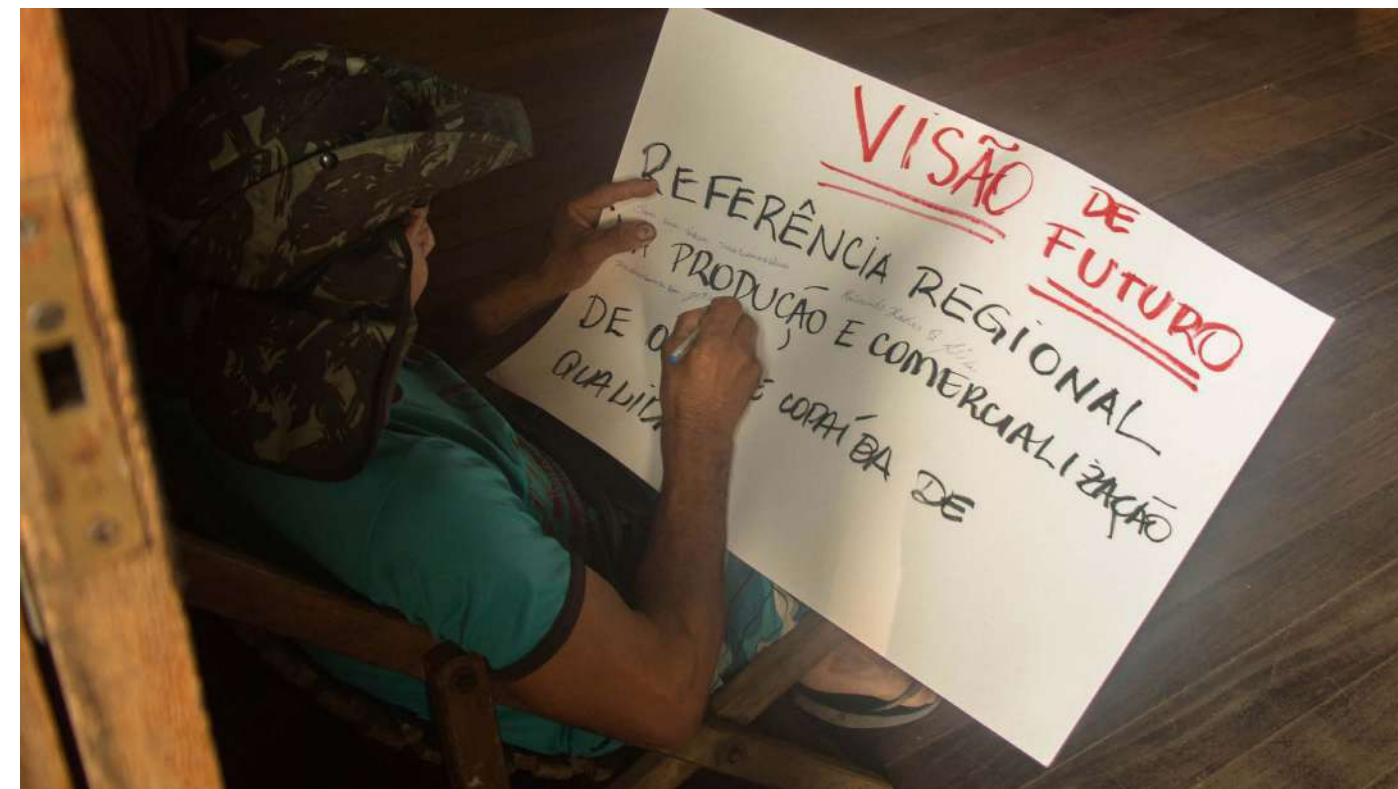 VISÃO DE
FUTURO
REFERÊNCIA REGIONAL
PRODUÇÃO E COMERCIALIZAÇÃO
DE COPAÍBA DE